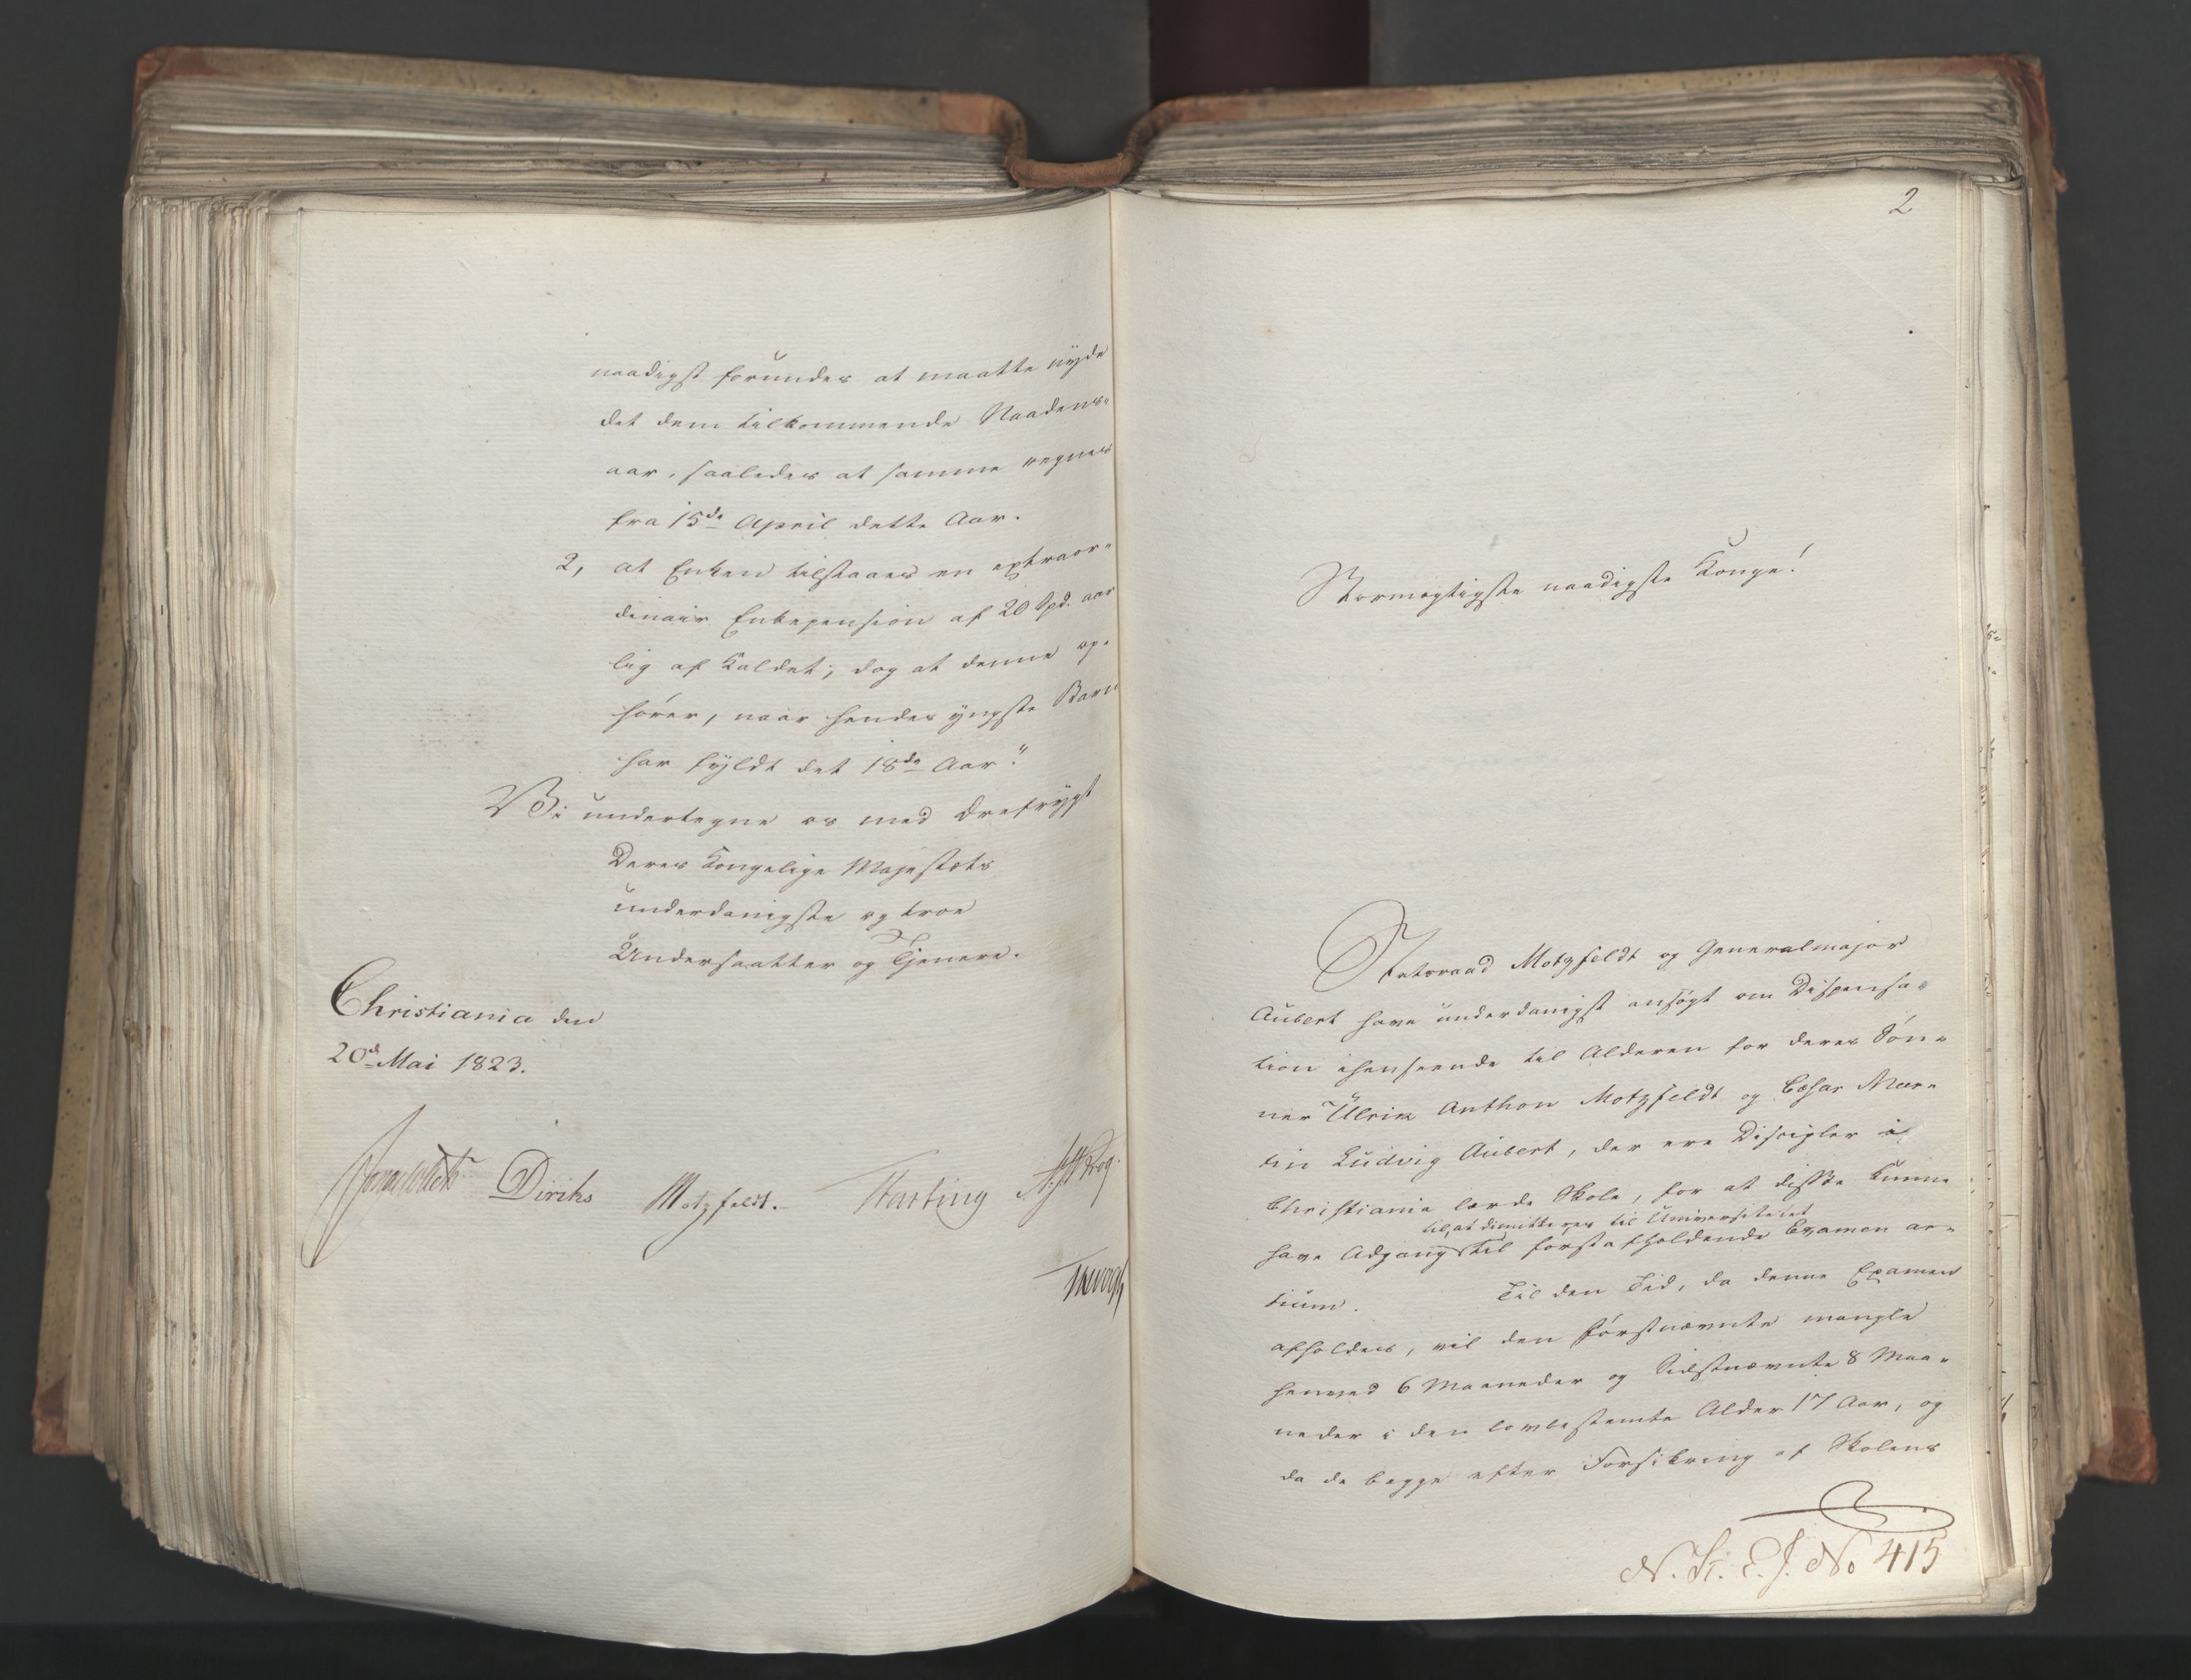 naadigst forundes at maatte nyde
det dem tilkommende Naadens-
aar, saaledes at samme regnes
fra 15de April dette Aar.
2, at Enken tilstaaes en extraor-
dinair Enkepension af 20 Spd. aar
lig af Kaldet; dog at denne op-
hører, naar hendes yngste Barn
har fyldt det 18de Aar."
Vi undertegne os med Ærefrygt
Deres Kongelige Majestæts
underdanigste og troe
Undersaatter og Tjenere.
Christiania den
20de Mai 1823.
Diriks Motzfeldt. Krog.
2
Stormægtigste naadigste Konge!
Statsraad Motzfeldt og Generalmajor
Aubert have underdanigst ansøgt om Dispensa-
tion ihenseende til Alderen for deres Søn-
ner Ulrik Anthon Motzfeldt og Cæsar Mar-
tin Ludvig Aubert, der ere Discipler i
Christiania lærde Skole, for at disse kunne
til, at dimitteres til Universitetet
have Adgang til førstafholdende Examen ar-
tium. Til den Tid, da denne Examen
afholdes, vil den Førstnævnte mangle
henved 6 Maaneder og Sidstnævnte 8 Maa-
neder i den lovbestemte Alder 17 Aar, og
da de begge efter Forsikring af Skolens
N. St. E. J. No 415